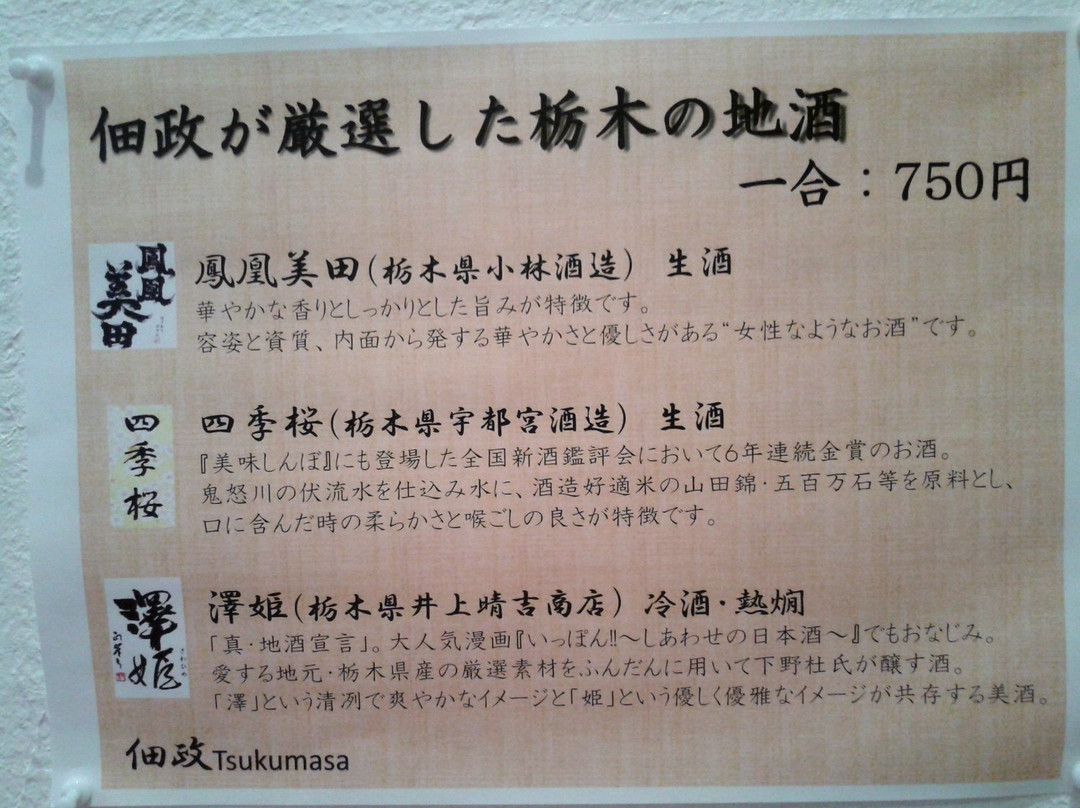 佃政が厳選した栃木の地酒
一合：750円
鳳凰美田
鳳凰美田(栃木県小林酒造) 生酒
華やかな香りとしっかりとした旨みが特徴です。
容姿と資質、内面から発する華やかさと優しさがある“女性なようなお酒”です。
四季桜
四季桜(栃木県宇都宮酒造) 生酒
『美味しんぼ』にも登場した全国新酒鑑評会において6年連続金賞のお酒。
鬼怒川の伏流水を仕込み水に、酒造好適米の山田錦・五百万石等を原料とし、
口に含んだ時の柔らかさと喉ごしの良さが特徴です。
澤姫
澤姫(栃木県井上晴吉商店) 冷酒・熱燗
「真・地酒宣言」。大人気漫画『いっぽん!!～しあわせの日本酒～』でもおなじみ。
愛する地元・栃木県産の厳選素材をふんだんに用いて下野杜氏が醸す酒。
「澤」という清冽で爽やかなイメージと「姫」という優しく優雅なイメージが共存する美酒。
佃政Tsukumasa